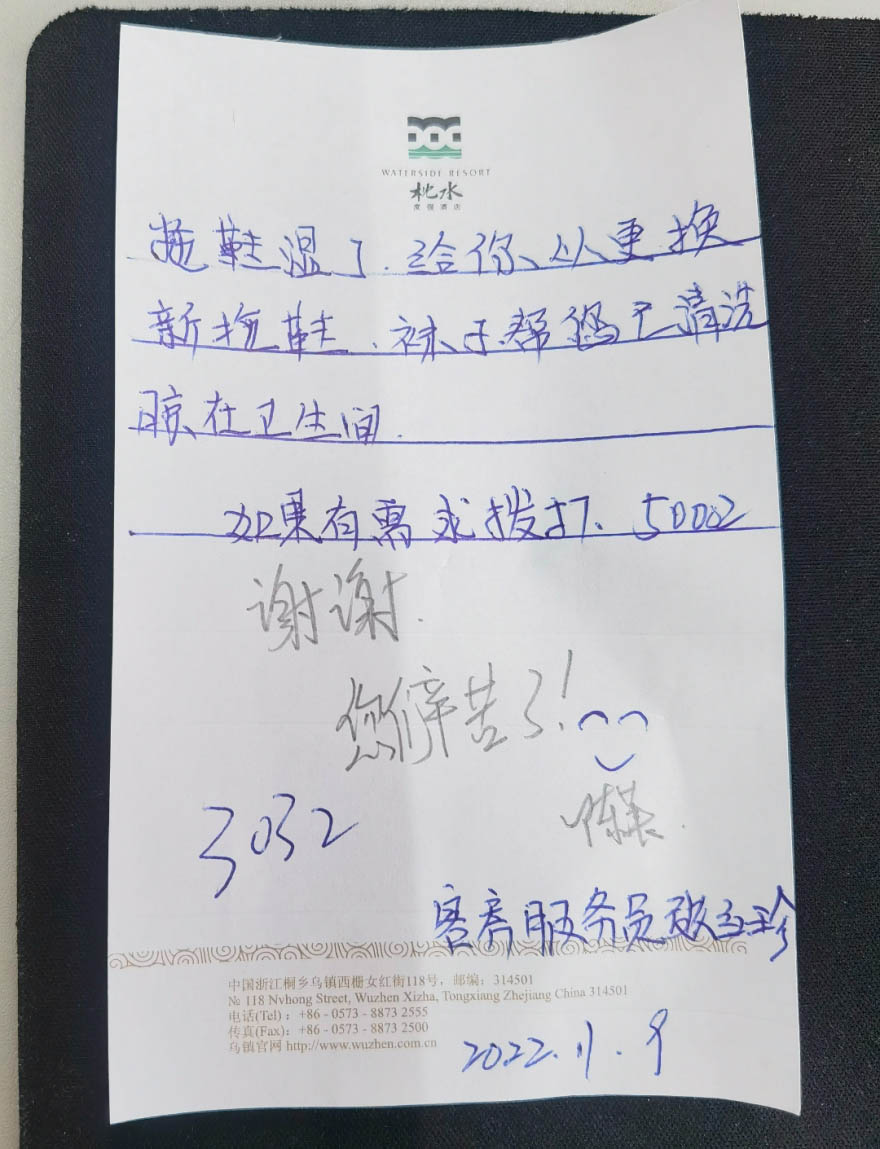 WATERSIDE RESORT
枕水
度假酒店
拖鞋湿了.给你从更换
新拖鞋.袜子帮您已清洗
晾在卫生间.
如果有需求拨打、5002
谢谢.
您们辛苦了!
3032
客房服务员
中国浙江桐乡乌镇西栅女红街118号，邮编：314501
№ 118 Nvhong Street, Wuzhen Xizha, Tongxiang Zhejiang China 314501
电话(Tel)：+86 - 0573 - 8873 2555
传真(Fax)：+86 - 0573 - 8873 2500
乌镇官网 http://www.wuzhen.com.cn
2022.11.9